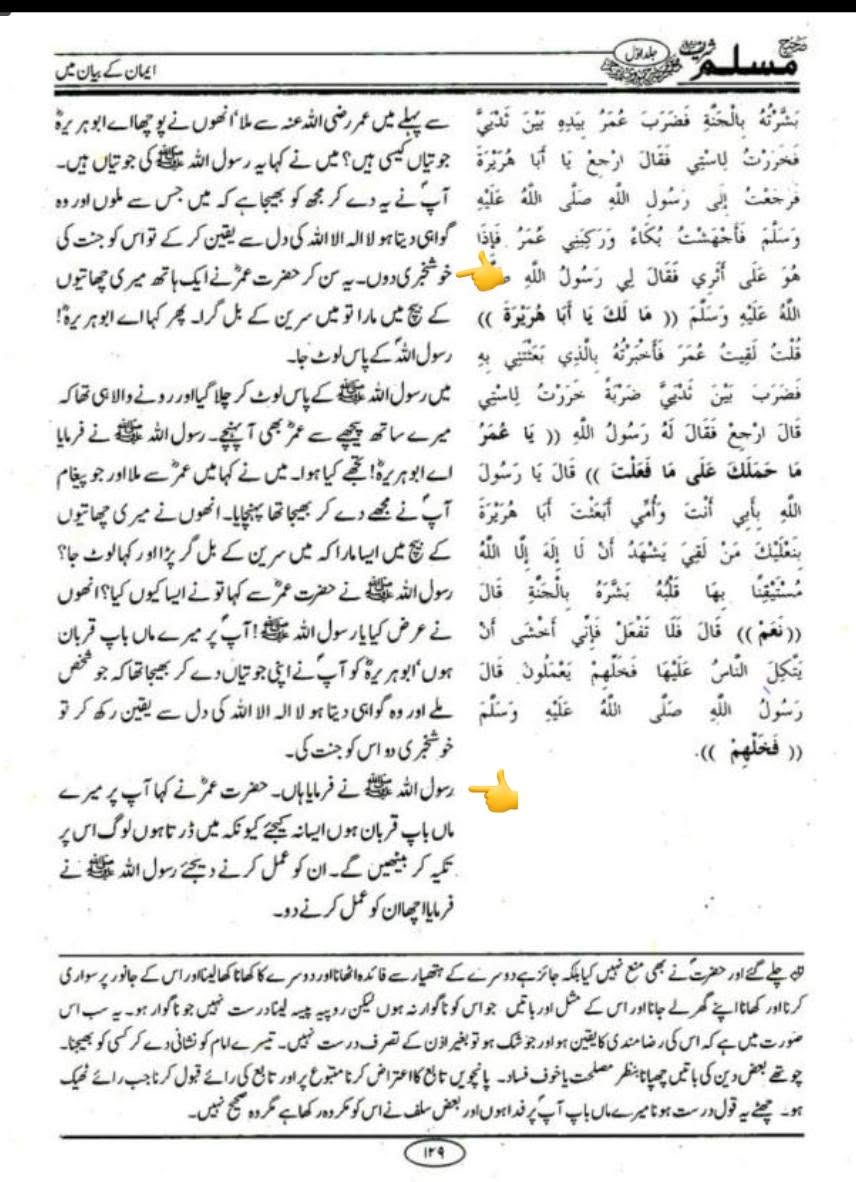 صحیح مسلم شریف
جلد اوّل
ایمان کے بیان میں
بَشَّرْتُهُ بِالْجَنَّةِ فَضَرَبَ عُمَرُ بِيَدِهِ بَيْنَ ثَدْيَيَّ
فَخَرَرْتُ لِاسْتِي فَقَالَ ارْجِعْ يَا أَبَا هُرَيْرَةَ
فَرَجَعْتُ إِلَى رَسُولِ اللَّهِ صَلَّى اللَّهُ عَلَيْهِ
وَسَلَّمَ فَأَجْهَشْتُ بُكَاءً وَرَكِبَنِي عُمَرُ فَإِذَا
هُوَ عَلَى أَثَرِي فَقَالَ لِي رَسُولُ اللَّهِ
اللَّهُ عَلَيْهِ وَسَلَّمَ (( مَا لَكَ يَا أَبَا هُرَيْرَةَ ))
قُلْتُ لَقِيتُ عُمَرَ فَأَخْبَرْتُهُ بِالَّذِي بَعَثْتَنِي بِهِ
فَضَرَبَ بَيْنَ ثَدْيَيَّ ضَرْبَةً خَرَرْتُ لِاسْتِي
قَالَ ارْجِعْ فَقَالَ لَهُ رَسُولُ اللَّهِ (( يَا عُمَرُ
مَا حَمَلَكَ عَلَى مَا فَعَلْتَ )) قَالَ يَا رَسُولَ
اللَّهِ بِأَبِي أَنْتَ وَأُمِّي أَبَعَثْتَ أَبَا هُرَيْرَةَ
بِنَعْلَيْكَ مَنْ لَقِيَ يَشْهَدُ أَنْ لَا إِلَهَ إِلَّا اللَّهُ
مُسْتَيْقِنًا بِهَا قَلْبُهُ بَشَّرَهُ بِالْجَنَّةِ قَالَ
((نَعَمْ)) قَالَ فَلَا تَفْعَلْ فَإِنِّي أَخْشَى أَنْ
يَتَّكِلَ النَّاسُ عَلَيْهَا فَخَلِّهِمْ يَعْمَلُونَ قَالَ
رَسُولُ اللَّهِ صَلَّى اللَّهُ عَلَيْهِ وَسَلَّمَ
(( فَخَلِّهِمْ )).
سے پہلے میں عمر رضی اللہ عنہ سے ملا انھوں نے پوچھا اے ابوہریرہؓ
جوتیاں کیسی ہیں؟ میں نے کہا یہ رسول اللہ ﷺ کی جوتیاں ہیں۔
آپؐ نے یہ دے کر مجھ کو بھیجا ہے کہ میں جس سے ملوں اور وہ
گواہی دیتا ہو لا الہ الا اللہ کی دل سے یقین کر کے تو اس کو جنت کی
خوشخبری دوں۔ یہ سن کر حضرت عمرؓ نے ایک ہاتھ میری چھاتیوں
کے بیچ میں مارا تو میں سرین کے بل گرا۔ پھر کہا اے ابوہریرہؓ!
رسول اللہؐ کے پاس لوٹ جا۔
میں رسول اللہ ﷺ کے پاس لوٹ کر چلا گیا اور رونے والا ہی تھا کہ
میرے ساتھ پیچھے سے عمرؓ بھی آ پہنچے۔ رسول اللہ ﷺ نے فرمایا
اے ابوہریرہؓ! تجھے کیا ہوا۔ میں نے کہا میں عمرؓ سے ملا اور جو پیغام
آپؐ نے مجھے دے کر بھیجا تھا پہنچایا۔ انھوں نے میری چھاتیوں
کے بیچ میں ایسا مارا کہ میں سرین کے بل گر پڑا اور کہا لوٹ جا؟
رسول اللہ ﷺ نے حضرت عمرؓ سے کہا تو نے ایسا کیوں کیا؟ انھوں
نے عرض کیا یا رسول اللہ ﷺ! آپؐ پر میرے ماں باپ قربان
ہوں ابوہریرہؓ کو آپؐ نے اپنی جوتیاں دے کر بھیجا تھا کہ جو شخص
ملے اور وہ گواہی دیتا ہو لا الہ الا اللہ کی دل سے یقین رکھ کر تو
خوشخبری دو اس کو جنت کی۔
رسول اللہ ﷺ نے فرمایا ہاں۔ حضرت عمرؓ نے کہا آپ پر میرے
ماں باپ قربان ہوں ایسا نہ کیجئے کیونکہ میں ڈرتا ہوں لوگ اس پر
تکیہ کر بیٹھیں گے۔ ان کو عمل کرنے دیجئے رسول اللہ ﷺ نے
فرمایا اچھا ان کو عمل کرنے دو۔
چلے گئے اور حضرتؐ نے بھی منع نہیں کیا بلکہ جائز ہے دوسرے کے ہتھیار سے فائدہ اٹھانا اور دوسرے کا کھانا کھا لینا اور اس کے جانور پر سواری
کرنا اور کھانا اپنے گھر لے جانا اور اس کے مثل اور باتیں جو اس کو ناگوار نہ ہوں لیکن روپیہ پیسہ لینا درست نہیں جو ناگوار ہو۔ یہ سب اس
صورت میں ہے کہ اس کی رضامندی کا یقین ہو اور جو شک ہو تو بغیر اذن کے تصرف درست نہیں۔ تیسرے امام کو نشانی دے کر کسی کو بھیجنا۔
چوتھے بعض دین کی باتیں چھپانا بنظر مصلحت یا خوف فساد۔ پانچویں تابع کا اعتراض کرنا متبوع پر اور تابع کی رائے قبول کرنا جب رائے ٹھیک
ہو۔ چھٹے یہ قول درست ہونا میرے ماں باپ آپؐ پر فدا ہوں اور بعض سلف نے اس کو مکروہ رکھا ہے مگر وہ صحیح نہیں۔
۱۲۹